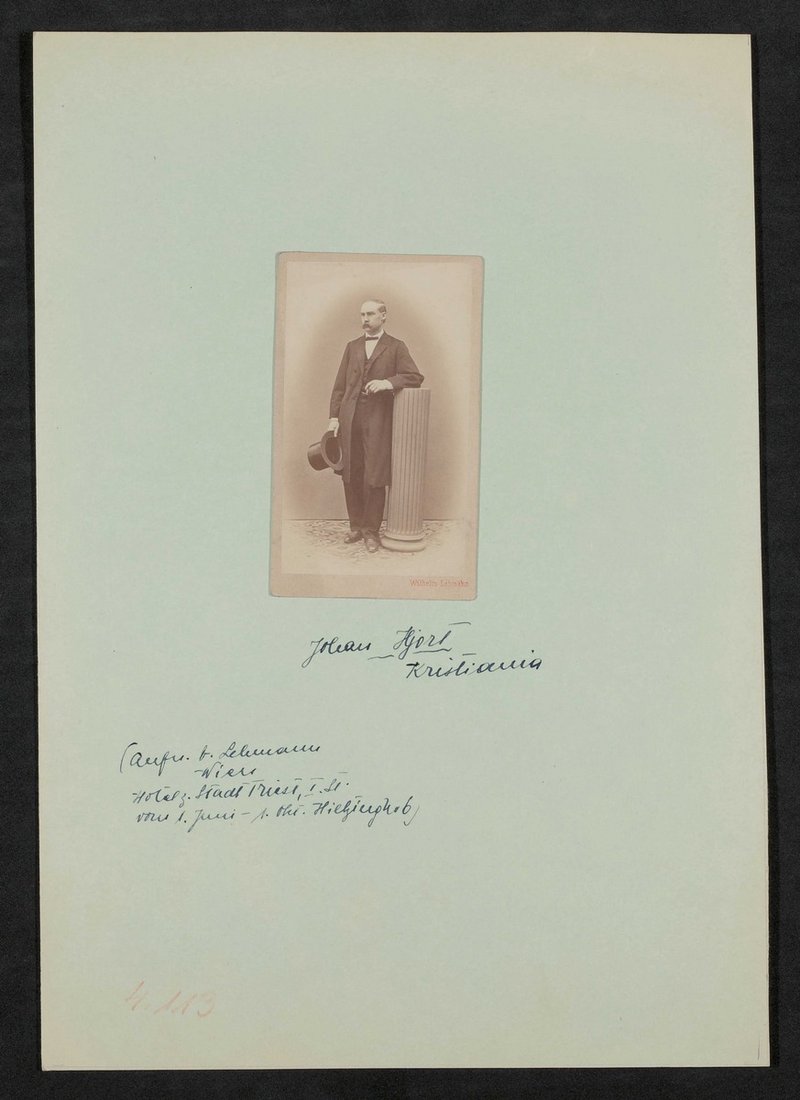 Wilhelm Lehmann
Johan Hjort
Kristiania
(Aufn. b. Lehmann
Wien
Hotel z. Stadt Triest, I. St.
vom 1. Juni - 1. Okt.
4.113